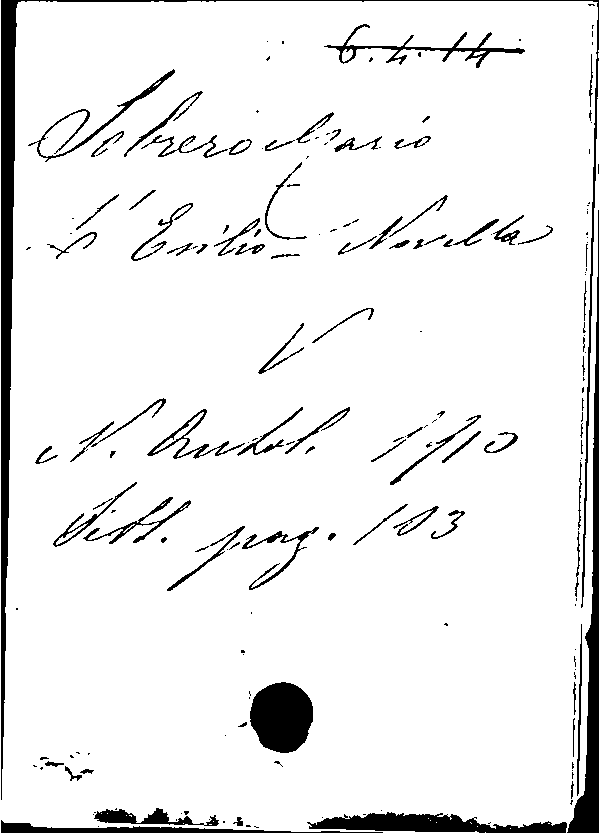 6.4.14
Sobrero Mario
L'Esilio - Novella
V
N. Antol. 1910
Sett. pag. 103